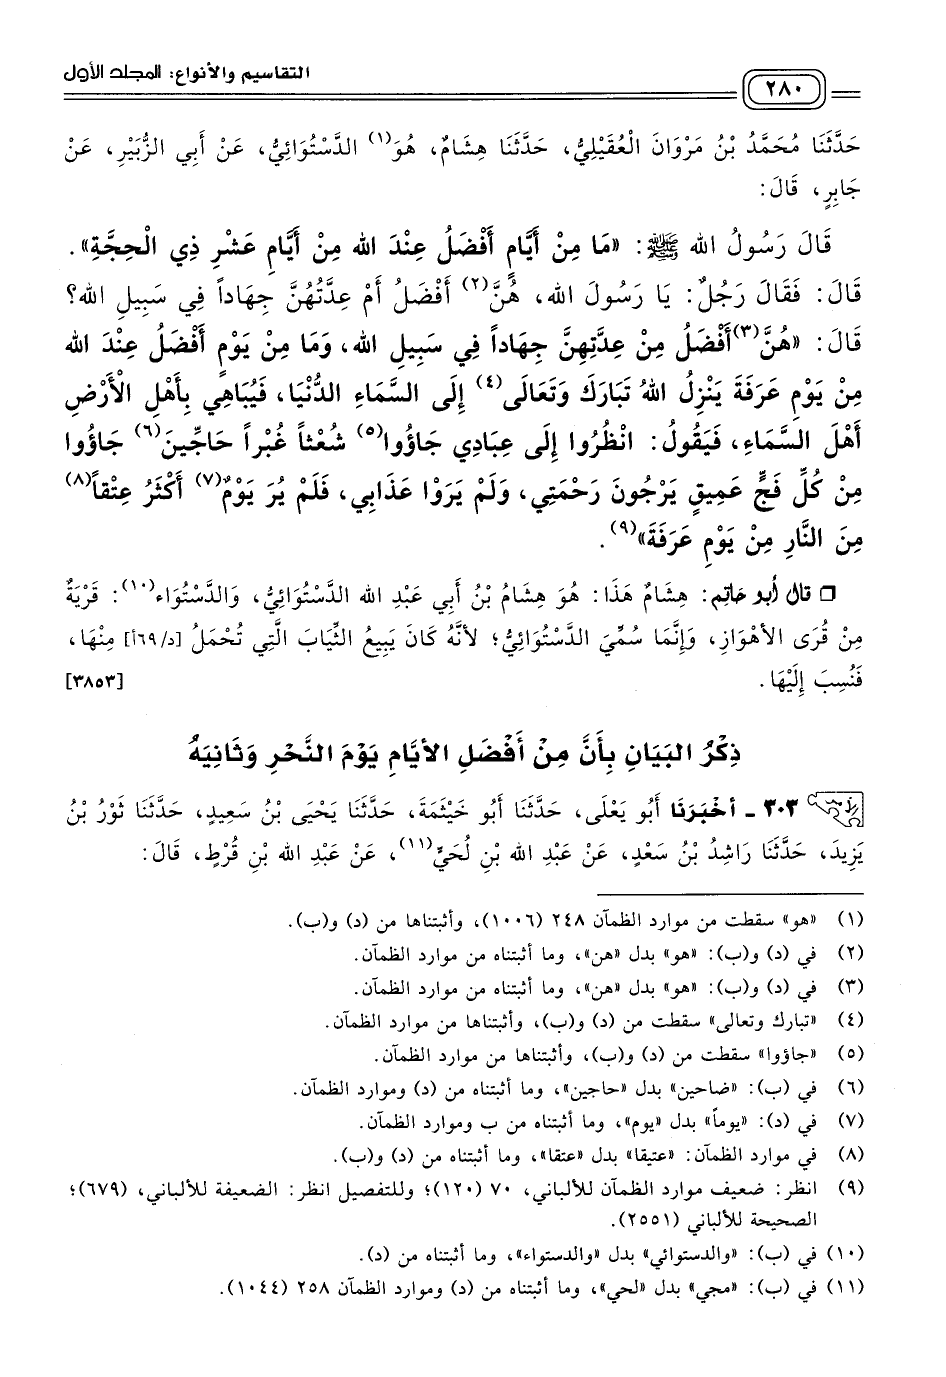 التقاسيم والأنواع: المجلد الأول
٢٨٠
حَدَّثَنَا مُحَمَّدُ بْنُ مَرْوَانَ الْعُقَيْلِيُّ، حَدَّثَنَا هِشَامٌ، هُوَ(١) الدَّسْتُوَائِيُّ، عَنْ أَبِي الزُّبَيْرِ، عَنْ
جَابِرٍ، قَالَ:
قَالَ رَسُولُ الله ﷺ: «مَا مِنْ أَيَّامٍ أَفْضَلُ عِنْدَ الله مِنْ أَيَّامِ عَشْرِ ذِي الْحِجَّةِ».
قَالَ: فَقَالَ رَجُلٌ: يَا رَسُولَ الله، هُنَّ(٢) أَفْضَلُ أَمْ عِدَّتُهُنَّ جِهَاداً فِي سَبِيلِ الله؟
قَالَ: «هُنَّ(٣) أَفْضَلُ مِنْ عِدَّتِهِنَّ جِهَاداً فِي سَبِيلِ الله، وَمَا مِنْ يَوْمٍ أَفْضَلُ عِنْدَ الله
مِنْ يَوْمِ عَرَفَةَ يَنْزِلُ اللهُ تَبَارَكَ وَتَعَالَى(٤) إِلَى السَّمَاءِ الدُّنْيَا، فَيُبَاهِي بِأَهْلِ الْأَرْضِ
أَهْلَ السَّمَاءِ، فَيَقُولُ: انْظُرُوا إِلَى عِبَادِي جَاؤُوا(٥) شُعْثاً غُبْراً حَاجِّينَ(٦) جَاؤُوا
مِنْ كُلِّ فَجٍّ عَمِيقٍ يَرْجُونَ رَحْمَتِي، وَلَمْ يَرَوْا عَذَابِي، فَلَمْ يُرَ يَوْمٌ(٧) أَكْثَرُ عِتْقاً(٨)
مِنَ النَّارِ مِنْ يَوْمِ عَرَفَةَ»(٩).
❒ قال أبو حاتم: هِشَامٌ هَذَا: هُوَ هِشَامُ بْنُ أَبِي عَبْدِ الله الدَّسْتُوَائِيُّ، وَالدَّسْتُوَاء(١٠): قَرْيَةٌ
مِنْ قُرَى الأَهْوَازِ، وَإِنَّمَا سُمِّيَ الدَّسْتُوَائِيُّ؛ لأَنَّهُ كَانَ يَبِيعُ الثِّيَابَ الَّتِي تُحْمَلُ [د/٦٩أ] مِنْهَا،
فَنُسِبَ إِلَيْهَا. [٣٨٥٣]
ذِكْرُ البَيَانِ بِأَنَّ مِنْ أَفْضَلِ الأَيَّامِ يَوْمَ النَّحْرِ وَثَانِيَهُ
٣٠٣ ـ أخْبَرَنَا أَبُو يَعْلَى، حَدَّثَنَا أَبُو خَيْثَمَةَ، حَدَّثَنَا يَحْيَى بْنُ سَعِيدٍ، حَدَّثَنَا ثَوْرُ بْنُ
يَزِيدَ، حَدَّثَنَا رَاشِدُ بْنُ سَعْدٍ، عَنْ عَبْدِ الله بْنِ لُحَيٍّ(١١)، عَنْ عَبْدِ الله بْنِ قُرْطٍ، قَالَ:
(١) «هو» سقطت من موارد الظمآن ٢٤٨ (١٠٠٦)، وأثبتناها من (د) و(ب).
(٢) في (د) و(ب): «هو» بدل «هن»، وما أثبتناه من موارد الظمآن.
(٣) في (د) و(ب): «هو» بدل «هن»، وما أثبتناه من موارد الظمآن.
(٤) «تبارك وتعالى» سقطت من (د) و(ب)، وأثبتناها من موارد الظمآن.
(٥) «جاؤوا» سقطت من (د) و(ب)، وأثبتناها من موارد الظمآن.
(٦) في (ب): «ضاحين» بدل «حاجين»، وما أثبتناه من (د) وموارد الظمآن.
(٧) في (د): «يوماً» بدل «يوم»، وما أثبتناه من ب وموارد الظمآن.
(٨) في موارد الظمآن: «عتيقا» بدل «عتقا»، وما أثبتناه من (د) و(ب).
(٩) انظر: ضعيف موارد الظمآن للألباني، ٧٠ (١٢٠)؛ وللتفصيل انظر: الضعيفة للألباني، (٦٧٩)؛
الصحيحة للألباني (٢٥٥١).
(١٠) في (ب): «والدستوائي» بدل «والدستواء»، وما أثبتناه من (د).
(١١) في (ب): «مجي» بدل «لحي»، وما أثبتناه من (د) وموارد الظمآن ٢٥٨ (١٠٤٤).